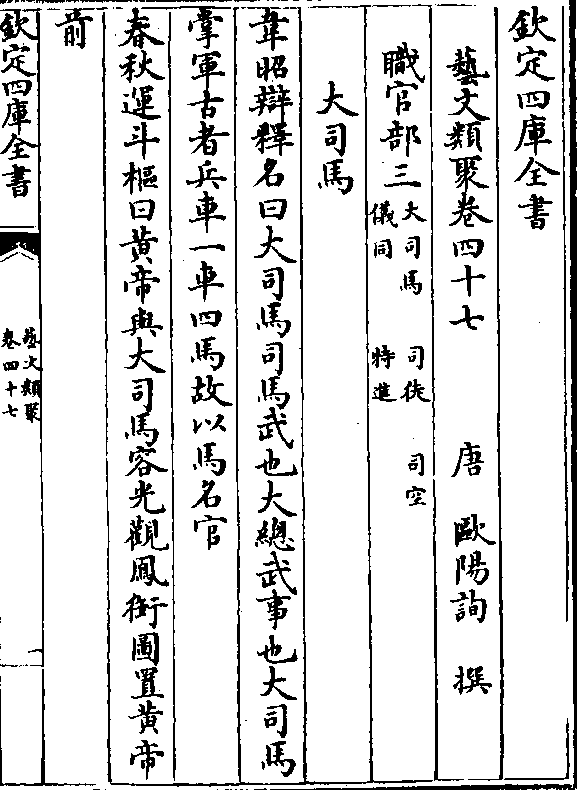 欽定四庫全書
藝文類聚卷四十七　唐　歐陽詢　撰
職官部三　大司馬　司徒　司空
儀同　特進
大司馬
韋昭辯釋名曰大司馬司馬武也大總武事也大司馬
掌軍古者兵車一車四馬故以馬名官
春秋運斗樞曰黃帝與大司馬容光觀鳳銜圖置黃帝
前
欽定四庫全書
藝文類聚
卷四十七
一